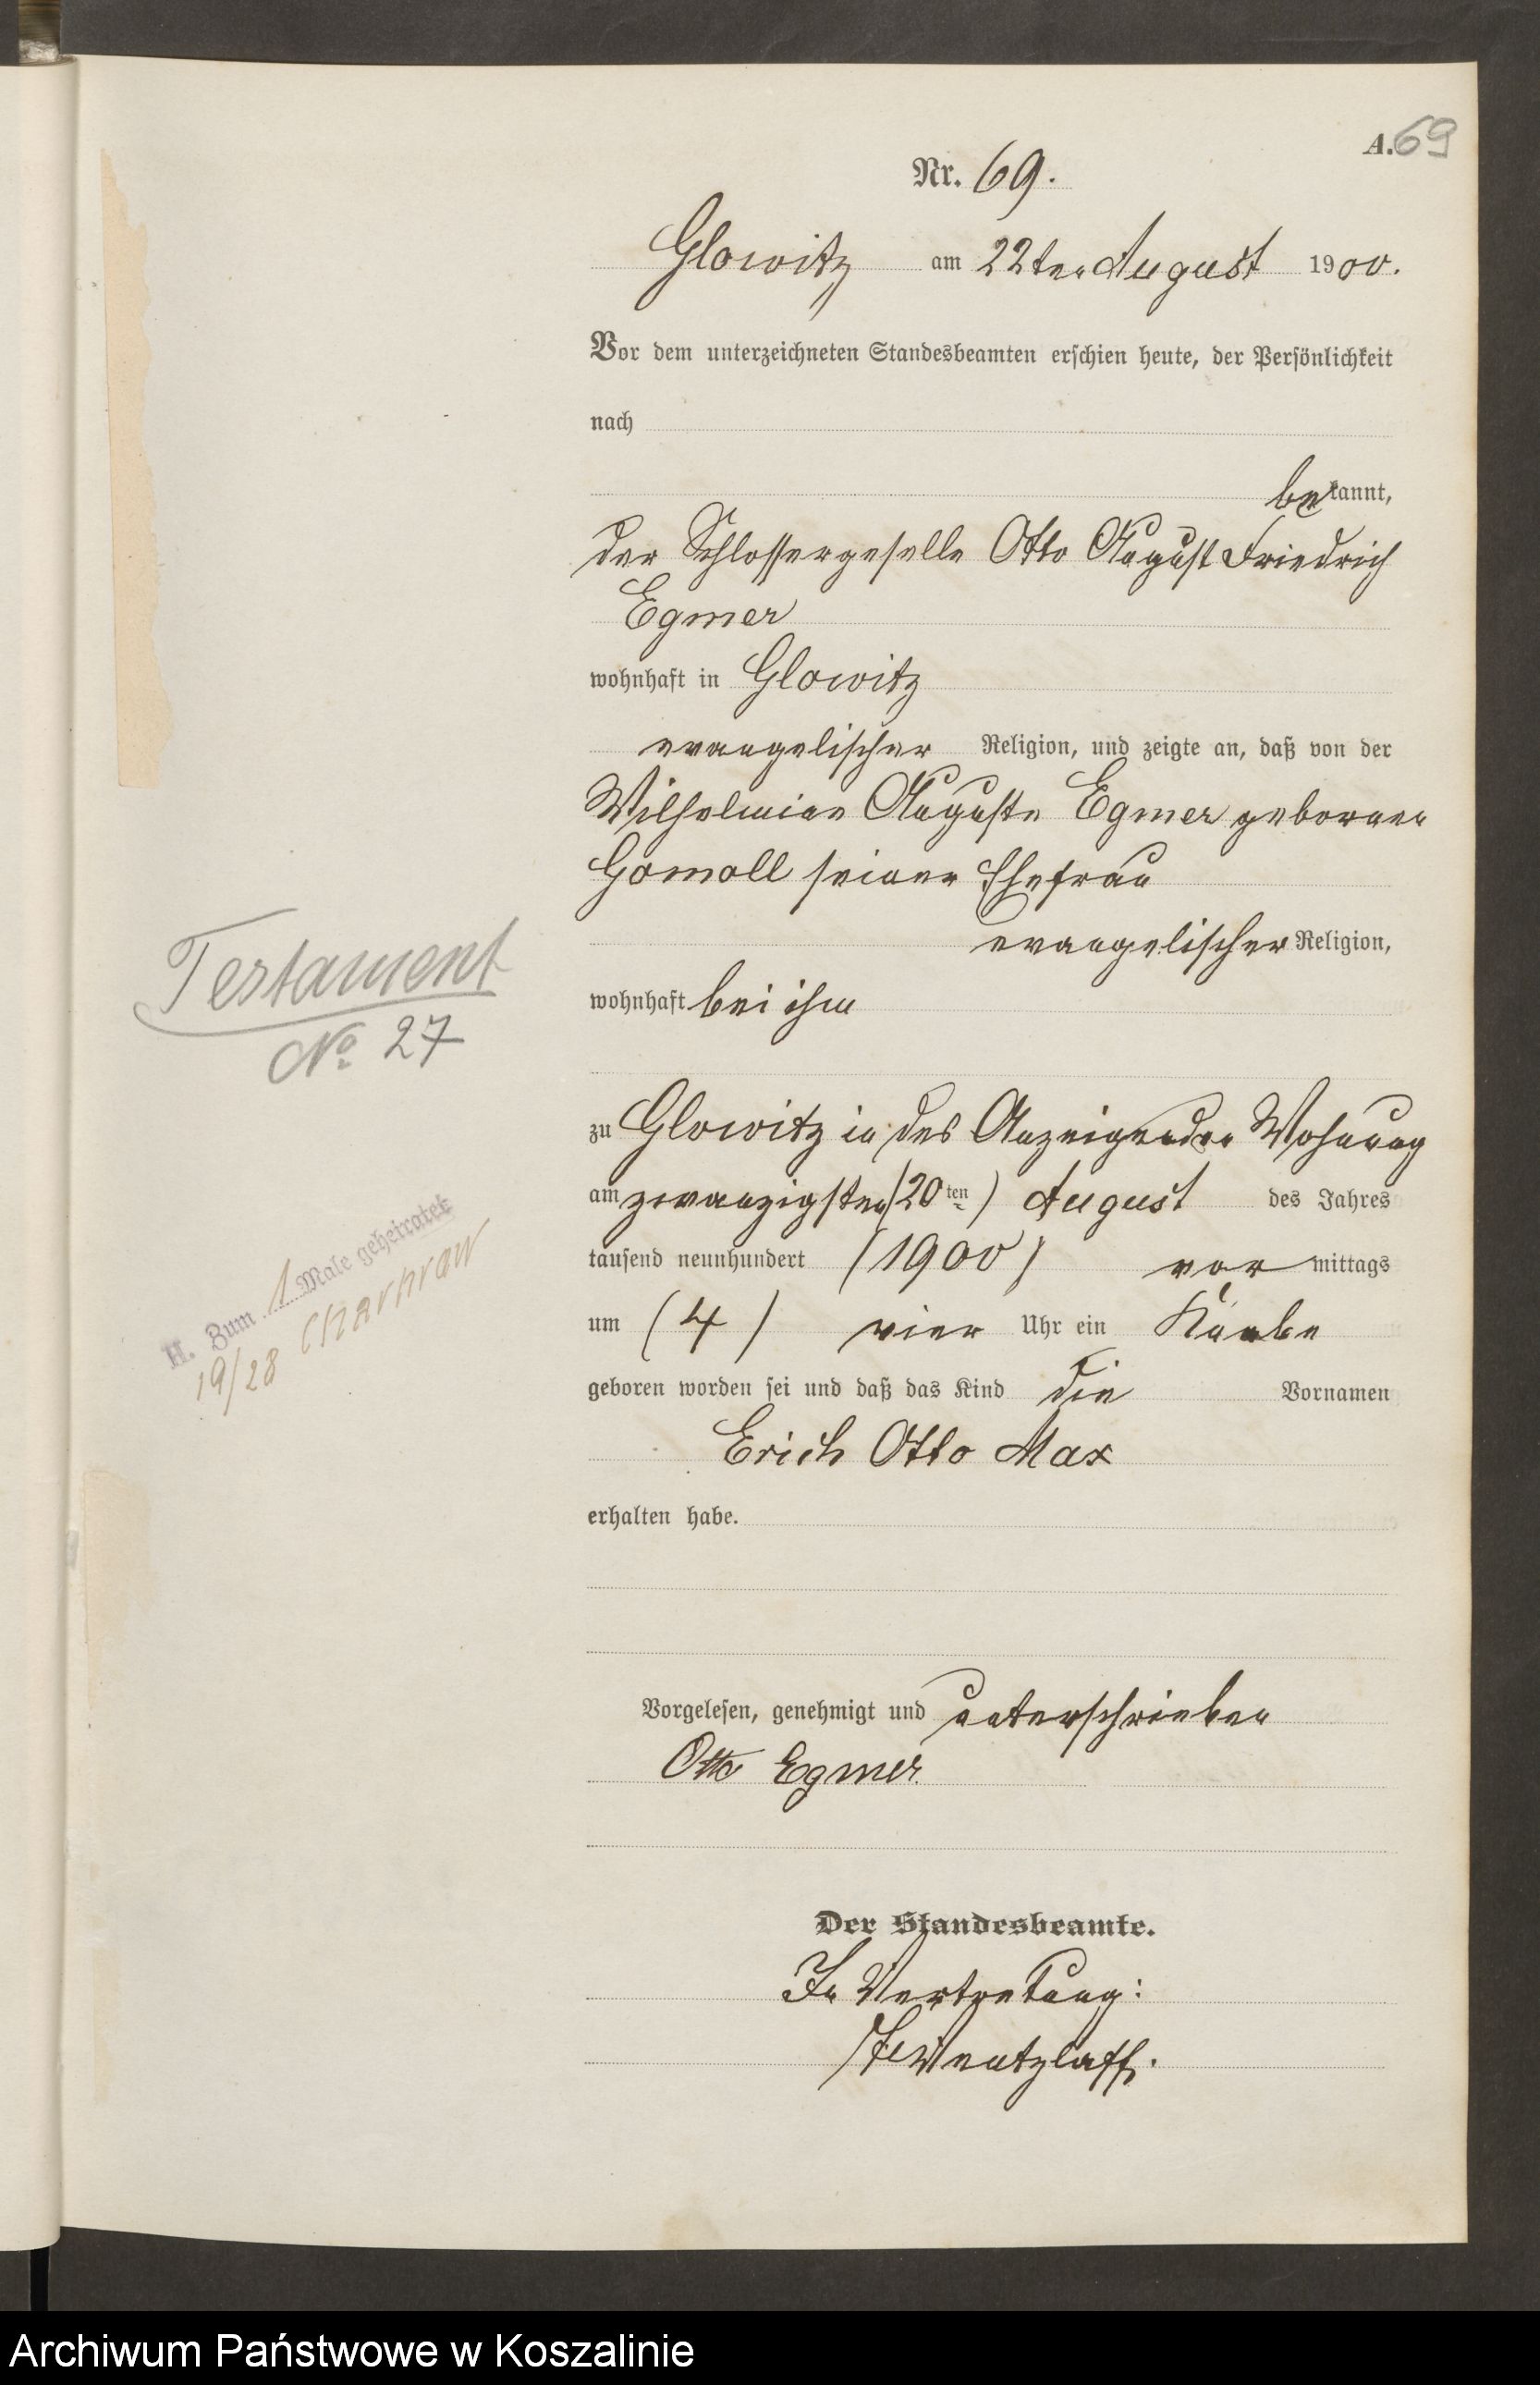 A. 69
Nr. 69.
Glowitz am 22ten August 1900.
Vor dem unterzeichneten Standesbeamten erschien heute, der Persönlichkeit
nach
bekannt,
der Schlossergeselle Otto August Friedrich
Egmer
wohnhaft in Glowitz
evangelischer Religion, und zeigte an, daß von der
Wilhelmine Auguste Egmer geborenen
Gomoll seiner Ehefrau
evangelischer Religion,
wohnhaft bei ihm
Testament
No 27
zu Glowitz in des Anzeigenden Wohnung
am zwanzigsten (20ten) August des Jahres
tausend neunhundert (1900) vor mittags
um (4) vier Uhr ein Knabe
H. Zum 1 Male geheiratet
19/28
geboren worden sei und daß das Kind die Vornamen
Erich Otto Max
erhalten habe.
Vorgelesen, genehmigt und unterschrieben
Otto Egmer
Der Standesbeamte.
In Vertretung:
Wentzlaff.
Archiwum Państwowe w Koszalinie